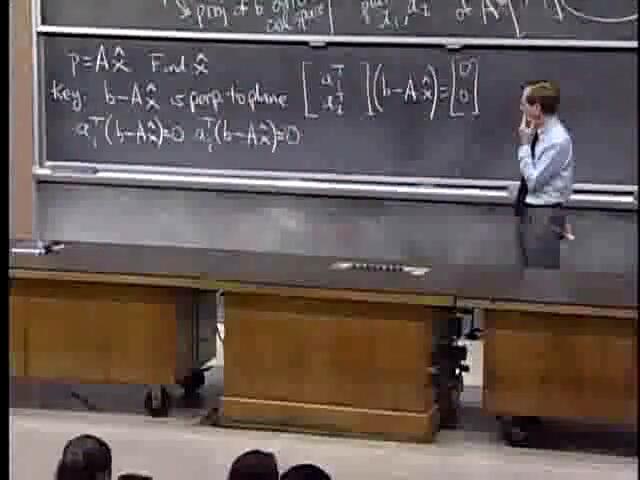 is proj of b onto plane of A
col space
p = Ax̂ Find x̂
Key: b - Ax̂ is perp to plane [a₁ᵀ a₂ᵀ](b - Ax̂) = [0 0]
a₁ᵀ(b - Ax̂) = 0 a₂ᵀ(b - Ax̂) = 0